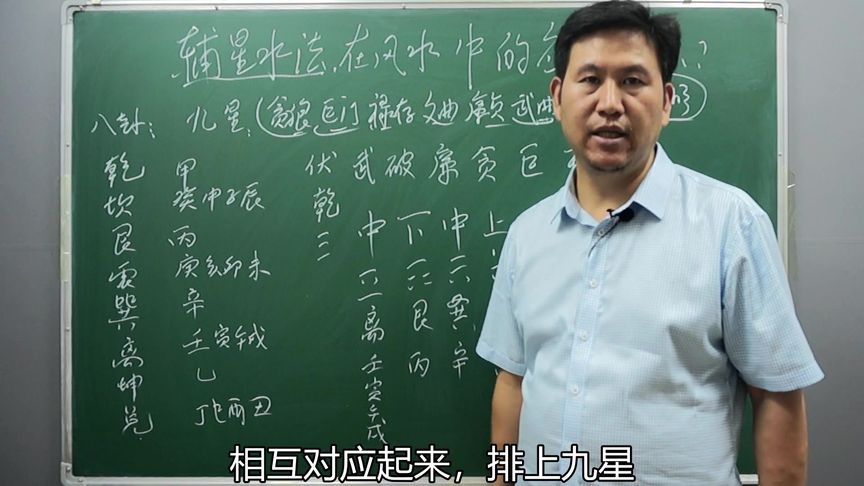 辅星水法在风水中的
八卦： 九星：（贪狼 巨门 禄存 文曲 廉贞 武曲
伏 武 破 廉 贪 巨
乾 甲
坎 癸申子辰
艮 丙
震 庚亥卯未
巽 辛
离 壬寅午戌
坤 乙
兑 丁巳酉丑
乾 三
中 下 中 上
离 艮 巽
壬 丙 辛
寅
午
戌
相互对应起来，排上九星